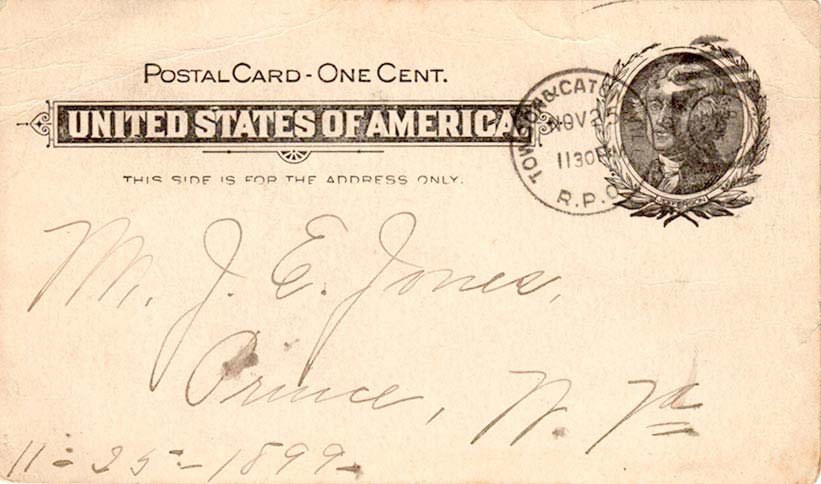 POSTAL CARD - ONE CENT.
UNITED STATES OF AMERICA.
THIS SIDE IS FOR THE ADDRESS ONLY.
TOWSON & CATO
NOV 25
1130
R.P.O
JEFFERSON
Mr. J. E. Jones,
Prince, W. Va
11-25-1899.